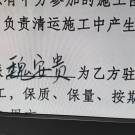 有十分参加的施工
负责清运施工中产生
魏安贵 为乙方驻
工,保质、保量、按期